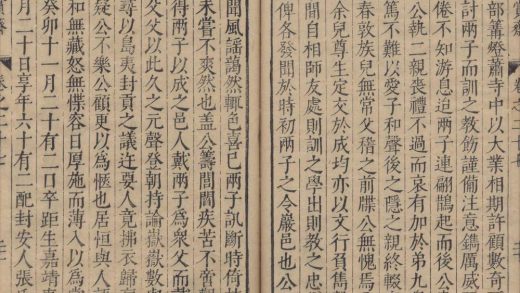 部篝燈蕭寺中以大業相期許顧數奇
計兩子而訓之教飭謹備注意鐫厲威
倦不知游息迨兩子連翩鵲起而後公
公執二親喪禮不過而哀有加於弟九
篤不難以愛子和聲後之隱之親終輟
春敦族兒無常父稽之前牒公無愧焉
余兒尊生定交於成均亦以文行負雋
間自相師友處則訓之學出則教之忠
俾各發聞於時初兩子之令巖邑也公
聞風謠藹然輒色喜已兩子訊斷時倚
未嘗不爽然也盖公籌閭閻疾苦不啻
得兩子以成之邑人戴兩子爲衆父而
父父以此久之元聲登朝持論嶽嶽數
尋以島夷封貢之議迕要人竟拂衣歸
疑公不樂公顧更以爲愜也居恒與人
和無藏怒無慍容日厚施而薄入以爲
癸卯十一月二十有二日卒距生嘉靖
月二十日享年六十有二配封安人張